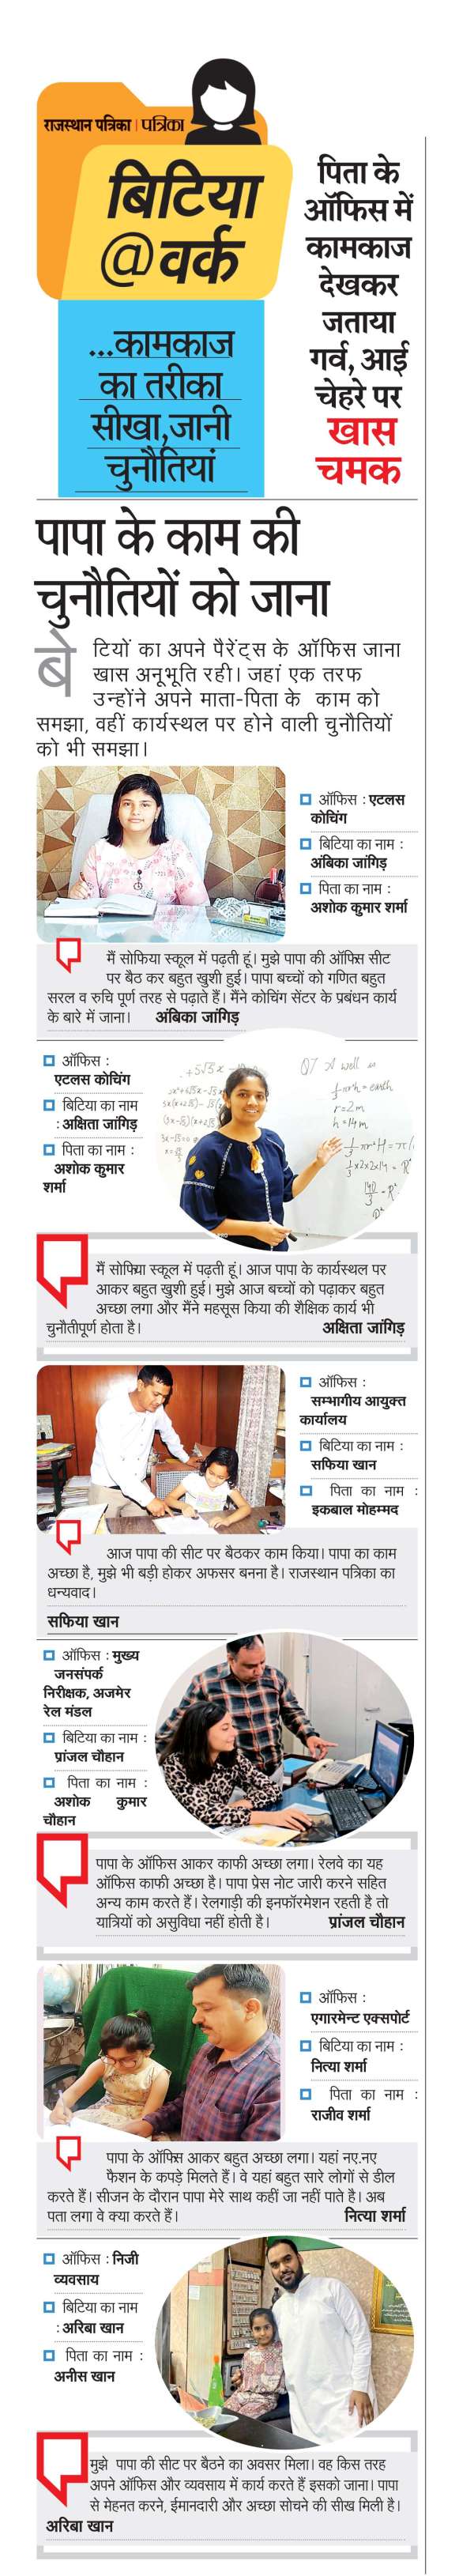 राजस्थान पत्रिका | पत्रिका
बिटिया
@वर्क
...कामकाज
का तरीका
सीखा,जानी
चुनौतियां
पिता के
ऑफिस में
कामकाज
देखकर
जताया
गर्व, आई
चेहरे पर
खास
चमक
पापा के काम की
चुनौतियों को जाना
बेटियों का अपने पैरेंट्स के ऑफिस जाना
खास अनूभूति रही। जहां एक तरफ
उन्होंने अपने माता-पिता के काम को
समझा, वहीं कार्यस्थल पर होने वाली चुनौतियों
को भी समझा।
ऑफिस : एटलस
कोचिंग
बिटिया का नाम :
अंबिका जांगिड़
पिता का नाम :
अशोक कुमार शर्मा
मैं सोफिया स्कूल में पढ़ती हूं। मुझे पापा की ऑफिस सीट
पर बैठ कर बहुत खुशी हुई। पापा बच्चों को गणित बहुत
सरल व रुचि पूर्ण तरह से पढ़ाते हैं। मैंने कोचिंग सेंटर के प्रबंधन कार्य
के बारे में जाना। अंबिका जांगिड़
ऑफिस :
एटलस कोचिंग
बिटिया का नाम
: अक्षिता जांगिड़
पिता का नाम :
अशोक कुमार
शर्मा
r=2m
h=14m
मैं सोफिया स्कूल में पढ़ती हूं। आज पापा के कार्यस्थल पर
आकर बहुत खुशी हुई। मुझे आज बच्चों को पढ़ाकर बहुत
अच्छा लगा और मैंने महसूस किया की शैक्षिक कार्य भी
चुनौतीपूर्ण होता है। अक्षिता जांगिड़
ऑफिस :
सम्भागीय आयुक्त
कार्यालय
बिटिया का नाम :
सफिया खान
पिता का नाम :
इकबाल मोहम्मद
आज पापा की सीट पर बैठकर काम किया। पापा का काम
अच्छा है, मुझे भी बड़ी होकर अफसर बनना है। राजस्थान पत्रिका का
धन्यवाद।
सफिया खान
ऑफिस : मुख्य
जनसंपर्क
निरीक्षक, अजमेर
रेल मंडल
बिटिया का नाम :
प्रांजल चौहान
पिता का नाम :
अशोक कुमार
चौहान
पापा के ऑफिस आकर काफी अच्छा लगा। रेलवे का यह
ऑफिस काफी अच्छा है। पापा प्रेस नोट जारी करने सहित
अन्य काम करते हैं। रेलगाड़ी की इनफॉरमेशन रहती है तो
यात्रियों को असुविधा नहीं होती है। प्रांजल चौहान
ऑफिस :
एगारमेन्ट एक्सपोर्ट
बिटिया का नाम :
नित्या शर्मा
पिता का नाम :
राजीव शर्मा
पापा के ऑफिस आकर बहुत अच्छा लगा। यहां नए.नए
फैशन के कपड़े मिलते हैं। वे यहां बहुत सारे लोगों से डील
करते हैं। सीजन के दौरान पापा मेरे साथ कहीं जा नहीं पाते है। अब
पता लगा वे क्या करते हैं। नित्या शर्मा
ऑफिस : निजी
व्यवसाय
बिटिया का नाम
: अरिबा खान
पिता का नाम :
अनीस खान
मुझे पापा की सीट पर बैठने का अवसर मिला। वह किस तरह
अपने ऑफिस और व्यवसाय में कार्य करते हैं इसको जाना। पापा
से मेहनत करने, ईमानदारी और अच्छा सोचने की सीख मिली है।
अरिबा खान